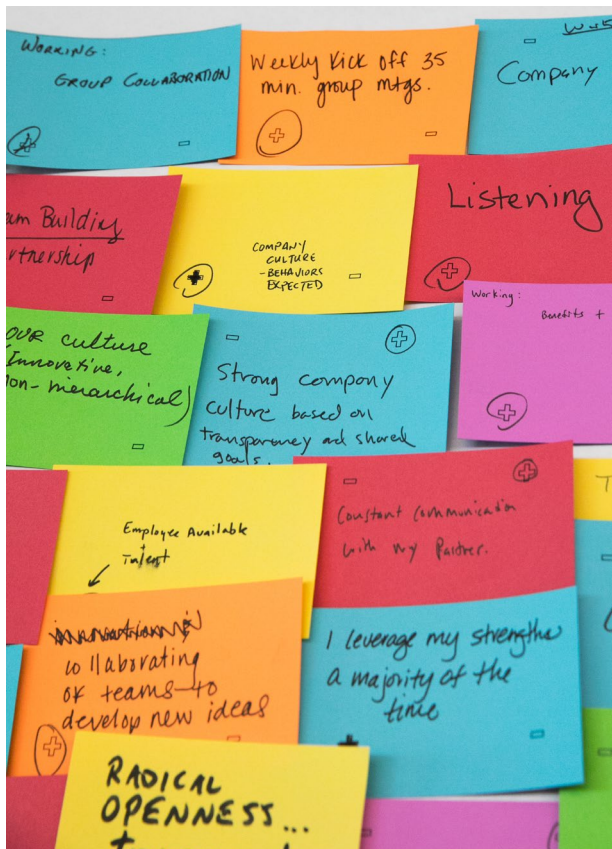 WORKING:
GROUP COLLABORATION
Weekly Kick off 35
min. group mtgs.
Company
Building
COMPANY
CULTURE
- BEHAVIORS
EXPECTED
Listening
Working:
Benefits +
OUR culture
(Innovative,
non-hierarchical)
Strong company
culture based on
transparency and shared
goals.
Employee Available
+
Talent
Constant Communication
with my Partner.
collaborating
of teams to
develop new ideas
I leverage my strengths
a majority of the
time
RADICAL
OPENNESS...